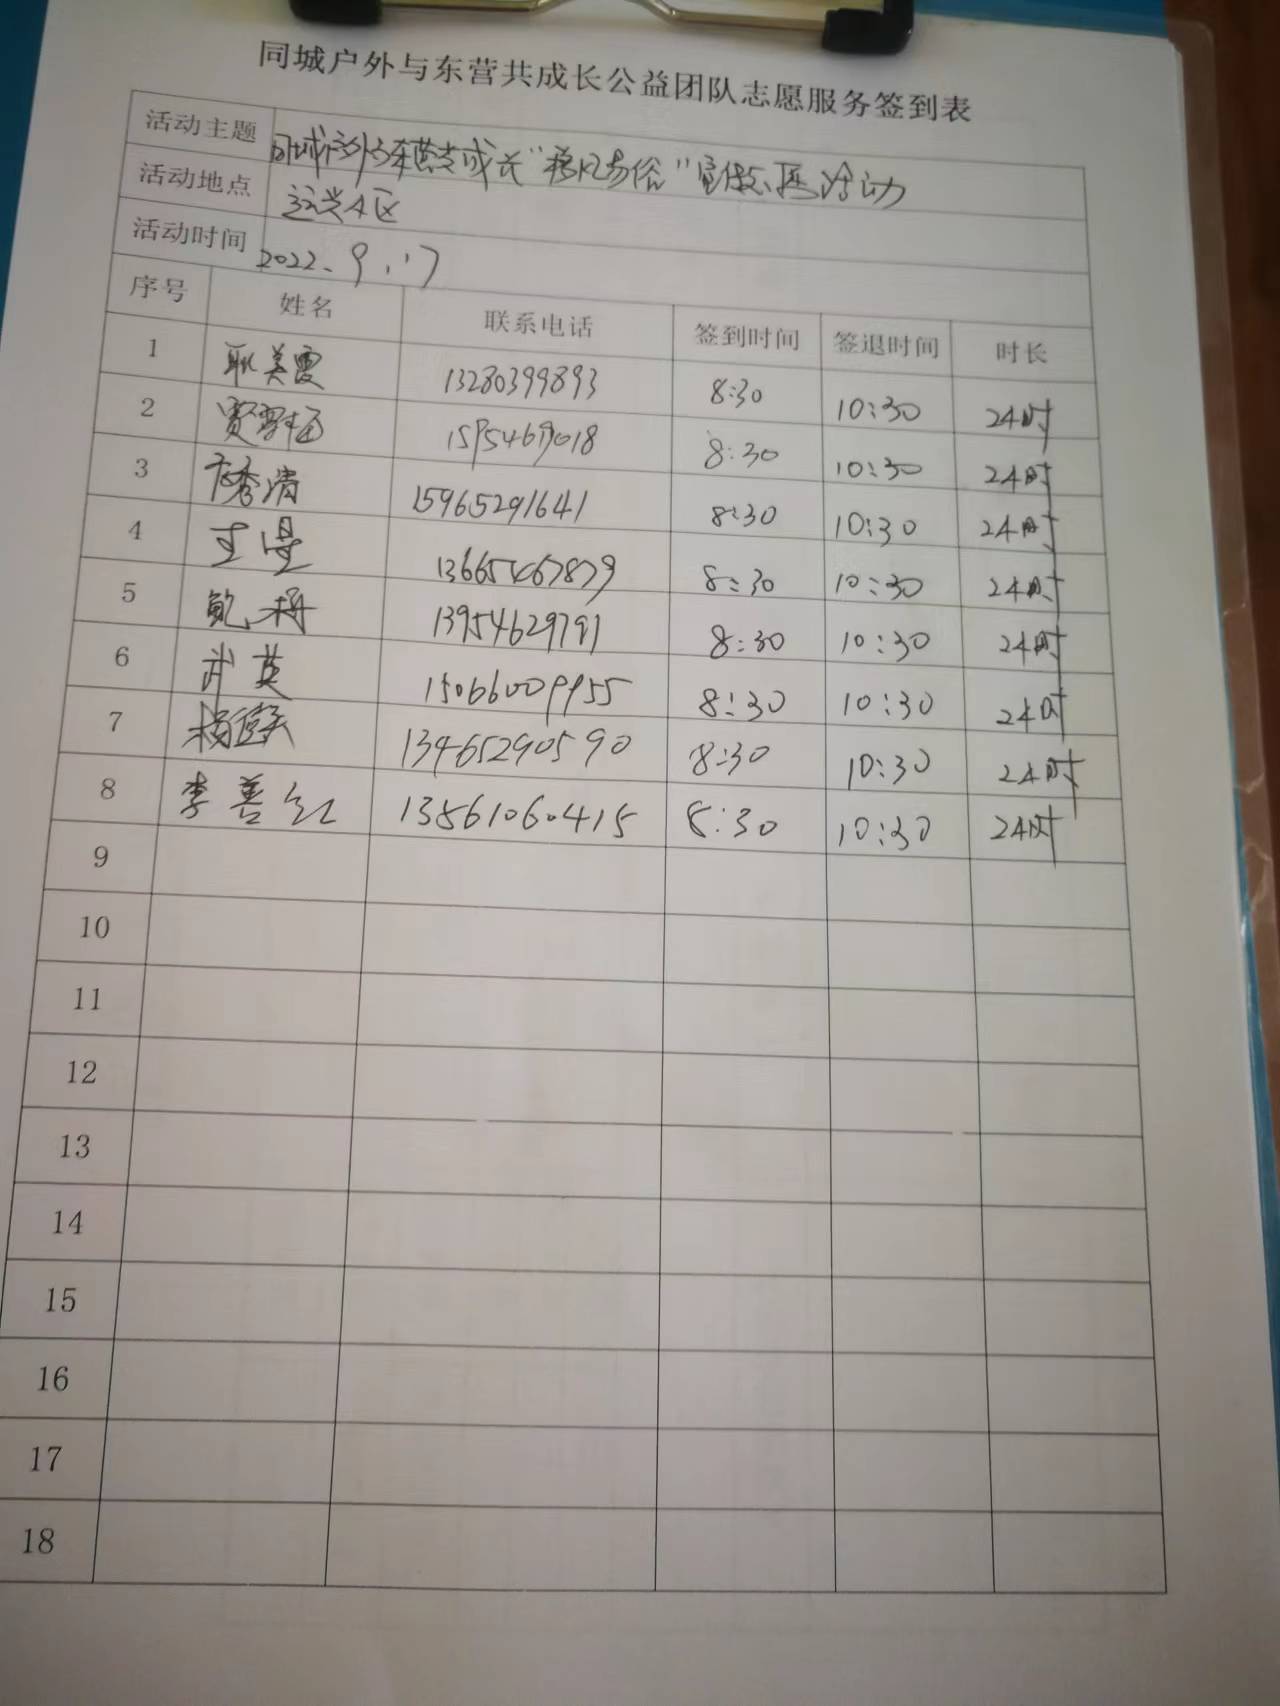 同城户外与东营共成长公益团队志愿服务签到表
活动主题 同城户外与东营共成长“移风易俗”宣传 活动
活动地点 运兴A区
活动时间 2022、9.17
序号 姓名 联系电话 签到时间 签退时间 时长
1 耿美霞 13280399893 8:30 10:30 2小时
2 贾雪梅 15954679018 8:30 10:30 2小时
3 秀清 15965291641 8:30 10:30 2小时
4 13665467879 8:30 10:30 2小时
5 鲍梅 13954629791 8:30 10:30 2小时
6 武英 15066009955 8:30 10:30 2小时
7 杨 13465290590 8:30 10:30 2小时
8 李善红 13561060415 8:30 10:30 2小时
9
10
11
12
13
14
15
16
17
18